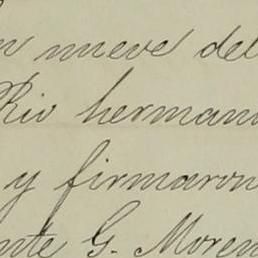 en nueve del
Rio herman
y firmaron
nte G. Moren